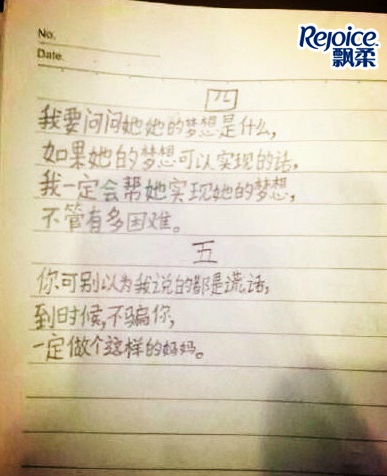 Rejoice
飘柔
No.
Date.
四
我要问问她她的梦想是什么,
如果她的梦想可以实现的话,
我一定会帮她实现她的梦想,
不管有多困难。
五
你可别以为我说的都是谎话,
到时候,不骗你,
一定做个这样的好妈妈。